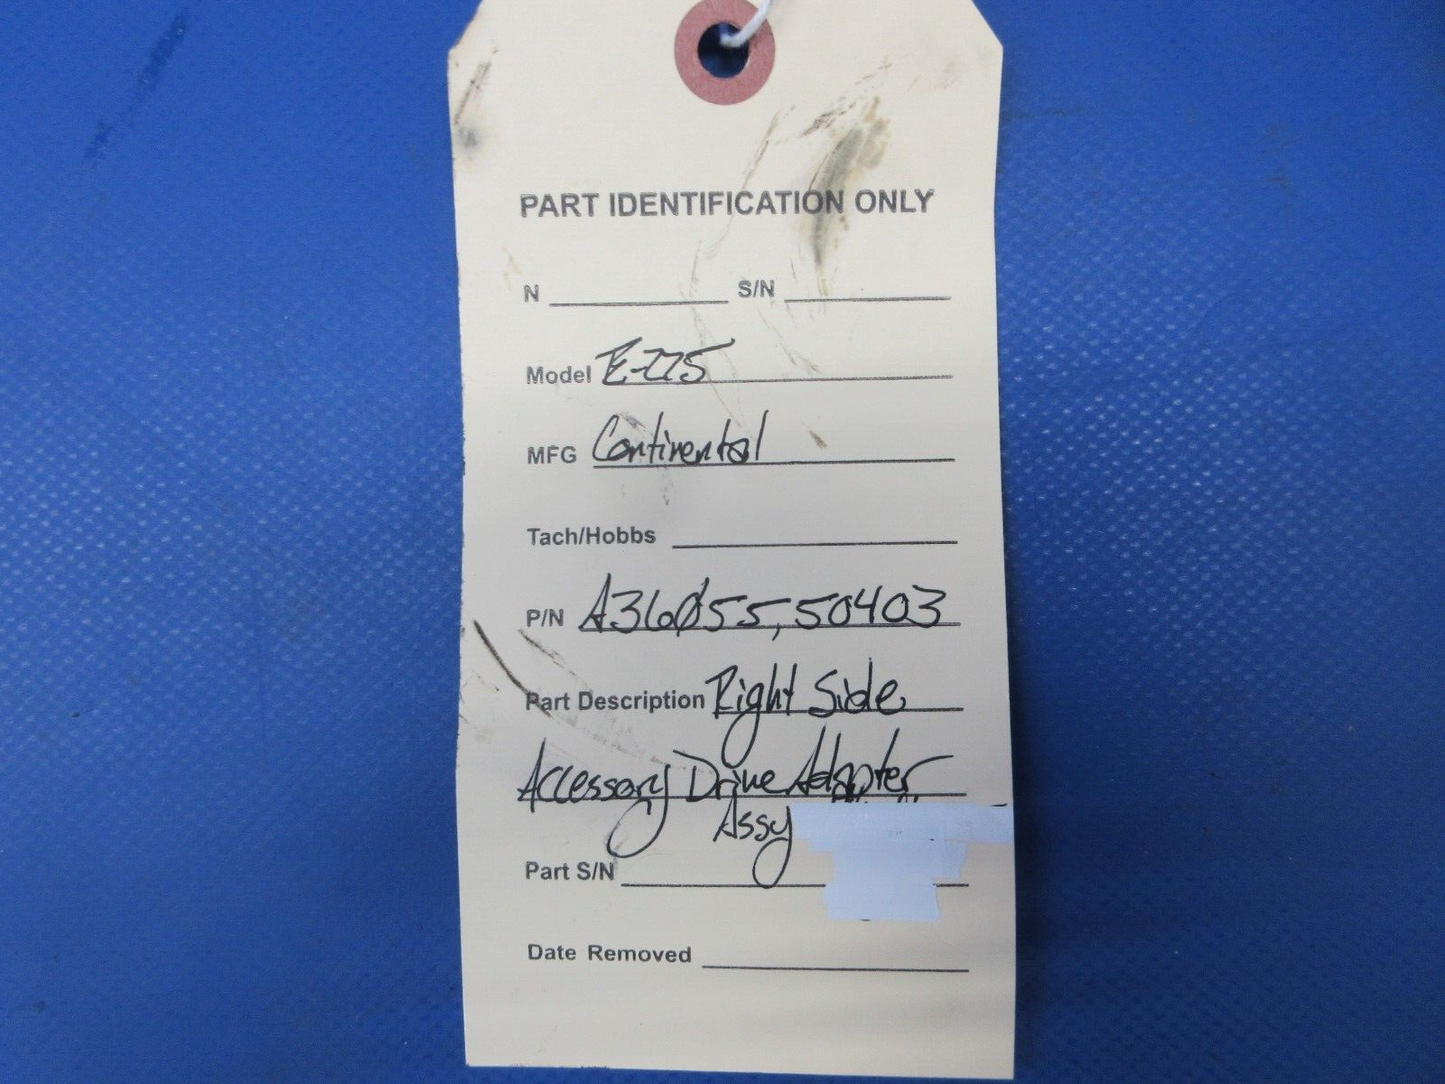 PART IDENTIFICATION ONLY
N S/N
Model E-225
MFG Continental
Tach/Hobbs
P/N A36Ø55, 50403
Part Description Right Side
Accessory Drive Adapter
Assy
Part S/N
Date Removed